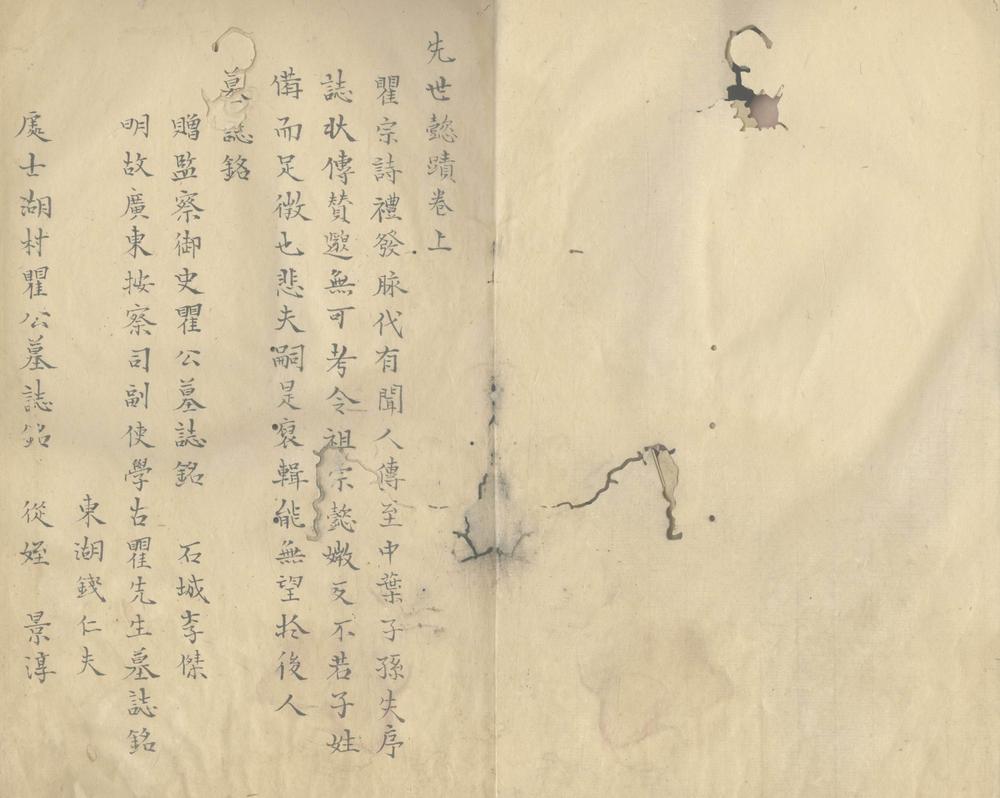 先世懿蹟卷上
瞿宗詩禮發脉代有聞人傳至中葉子孫失序
誌狀傳贊邈無可考令祖宗懿媺反不若子姓
備而足徵也悲夫嗣是裒輯能無望於後人
墓誌銘
贈監察御史瞿公墓誌銘 石城李傑
明故廣東按察司副使學古瞿先生墓誌銘
東湖錢仁夫
處士湖村瞿公墓誌銘 從姪 景淳